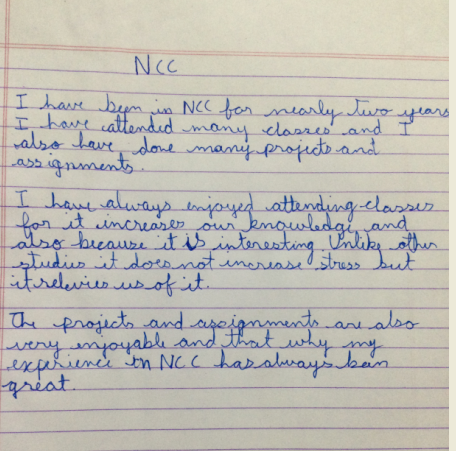 NCC
I have been in NCC for nearly two years
I have attended many classes and I
also have done many projects and
assignments.
I have always enjoyed attending classes
for it increases our knowledge and
also because it is interesting. Unlike other
studies it does not increase stress but
it relevies us of it.
The projects and assignments are also
very enjoyable and that why my
experience in NCC has always ban
great.